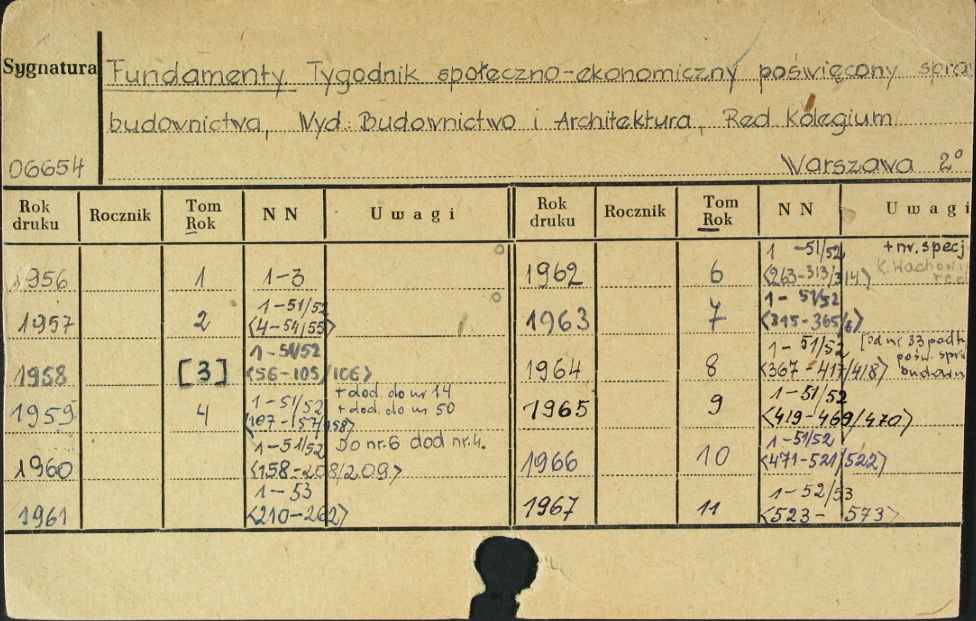 Sygnatura Fundamenty Tygodnik społeczno-ekonomiczny poświęcony spra
budownictwa, Wyd. Budownictwo i Architektura, Red Kolegium
06654 Warszawa 2°
Rok druku Rocznik Tom Rok N N Uwagi Rok druku Rocznik Tom Rok N N Uwagi
1956 1 1-3
1957 2 1-51/52 <4-54/55>
1958 [3] 1-51/52 <56-105/106>
1959 4 1-51/52 <107-157/158> + dod. do nr 14 + dod. do nr 50
1960 1-51/52 <158-208/209> Do nr 6 dod nr 4.
1961 1-53 <210-262>
1962 6 1-51/52 <263-313/314> + nr. specj
1963 7 1-51/52 <315-365/6>
1964 8 1-51/52 <367-417/418> [od nr 33 podt. pośw. spra budown
1965 9 1-51/52 <419-469/470>
1966 10 1-51/52 <471-521/522>
1967 11 1-52/53 <523-573>